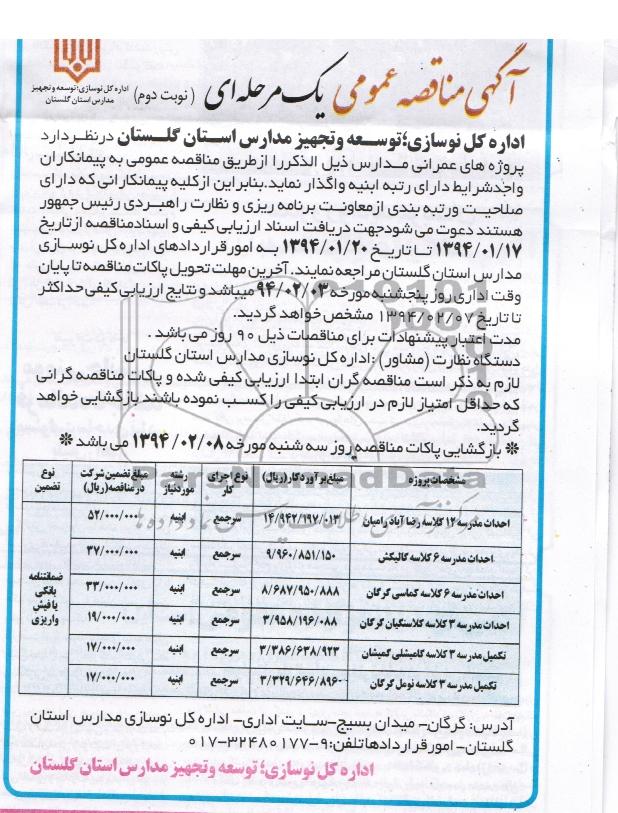 اداره کل نوسازی؛توسعه وتجهیز
مدارس استان گلستان
آگهی مناقصه عمومی یک مرحله ای (نوبت دوم)
اداره کل نوسازی؛توسعه وتجهیز مدارس استان گلستان درنظردارد
پروژه های عمرانی مدارس ذیل الذکررا ازطریق مناقصه عمومی به پیمانکاران
واجدشرایط دارای رتبه ابنیه واگذار نماید.بنابراین ازکلیه پیمانکارانی که دارای
صلاحیت ورتبه بندی ازمعاونت برنامه ریزی و نظارت راهبردی رئیس جمهور
هستند دعوت می شودجهت دریافت اسناد ارزیابی کیفی و اسنادمناقصه ازتاریخ
۱۳۹۴/۰۱/۱۷ تا تاریخ ۱۳۹۴/۰۱/۲۰ به امورقراردادهای اداره کل نوسازی
مدارس استان گلستان مراجعه نمایند. آخرین مهلت تحویل پاکات مناقصه تا پایان
وقت اداری روز پنجشنبه مورخه ۹۴/۰۲/۰۳ میباشد و نتایج ارزیابی کیفی حداکثر
تا تاریخ ۱۳۹۴/۰۲/۰۷ مشخص خواهد گردید.
مدت اعتبار پیشنهادات برای مناقصات ذیل ۹۰ روز می باشد .
دستگاه نظارت (مشاور) :اداره کل نوسازی مدارس استان گلستان
لازم به ذکر است مناقصه گران ابتدا ارزیابی کیفی شده و پاکات مناقصه گرانی
که حداقل امتیاز لازم در ارزیابی کیفی را کسب نموده باشند بازگشایی خواهد
گردید.
* بازگشایی پاکات مناقصه روز سه شنبه مورخه ۱۳۹۴/۰۲/۰۸ می باشد *
ParsNamadData
مشخصات پروژه مبلغ برآورد کار (ریال) نوع اجرای کار رشته موردنیاز مبلغ تضمین شرکت در مناقصه (ریال) نوع تضمین
احداث مدرسه ۱۲ کلاسه رضا آباد رامیان ۱۴/۹۴۲/۱۹۷/۰۱۳ سرجمع ابنیه ۵۲/۰۰۰/۰۰۰
احداث مدرسه ۶ کلاسه گالیکش ۹/۹۶۰/۸۵۱/۱۵۰ سرجمع ابنیه ۳۷/۰۰۰/۰۰۰
احداث مدرسه ۶ کلاسه کماسی گرگان ۸/۶۸۷/۹۵۰/۸۸۸ سرجمع ابنیه ۳۳/۰۰۰/۰۰۰
احداث مدرسه ۳ کلاسه کلاسنگیان گرگان ۳/۹۵۸/۱۹۶/۰۸۸ سرجمع ابنیه ۱۹/۰۰۰/۰۰۰
تکمیل مدرسه ۳ کلاسه کامیشلی گمیشان ۳/۳۸۶/۶۳۸/۹۲۳ سرجمع ابنیه ۱۷/۰۰۰/۰۰۰
تکمیل مدرسه ۳ کلاسه نومل گرگان ۳/۳۲۹/۶۴۶/۸۹۶- سرجمع ابنیه ۱۷/۰۰۰/۰۰۰
ضمانتنامه
بانکی
یا فیش
واریزی
آدرس: گرگان- میدان بسیج-سایت اداری- اداره کل نوسازی مدارس استان
گلستان- امورقراردادهاتلفن:۹-۳۲۴۸۰۱۷۷-۰۱۷
اداره کل نوسازی؛ توسعه وتجهیز مدارس استان گلستان